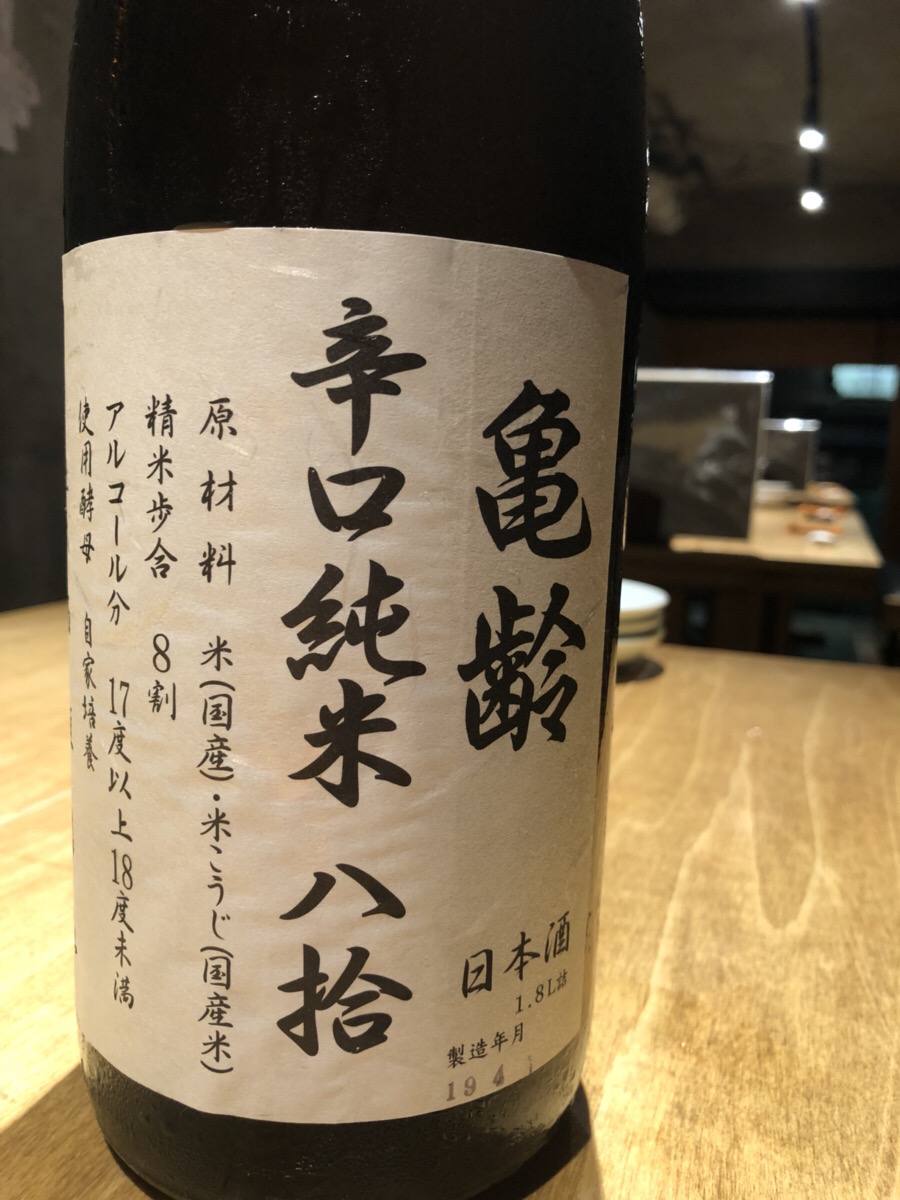 亀齢
日本酒
1.8L詰
製造年月
19 4
辛口純米 八拾
原材料 米(国産)・米こうじ(国産米)
精米歩合 8割
アルコール分 17度以上18度未満
使用酵母 自家培養